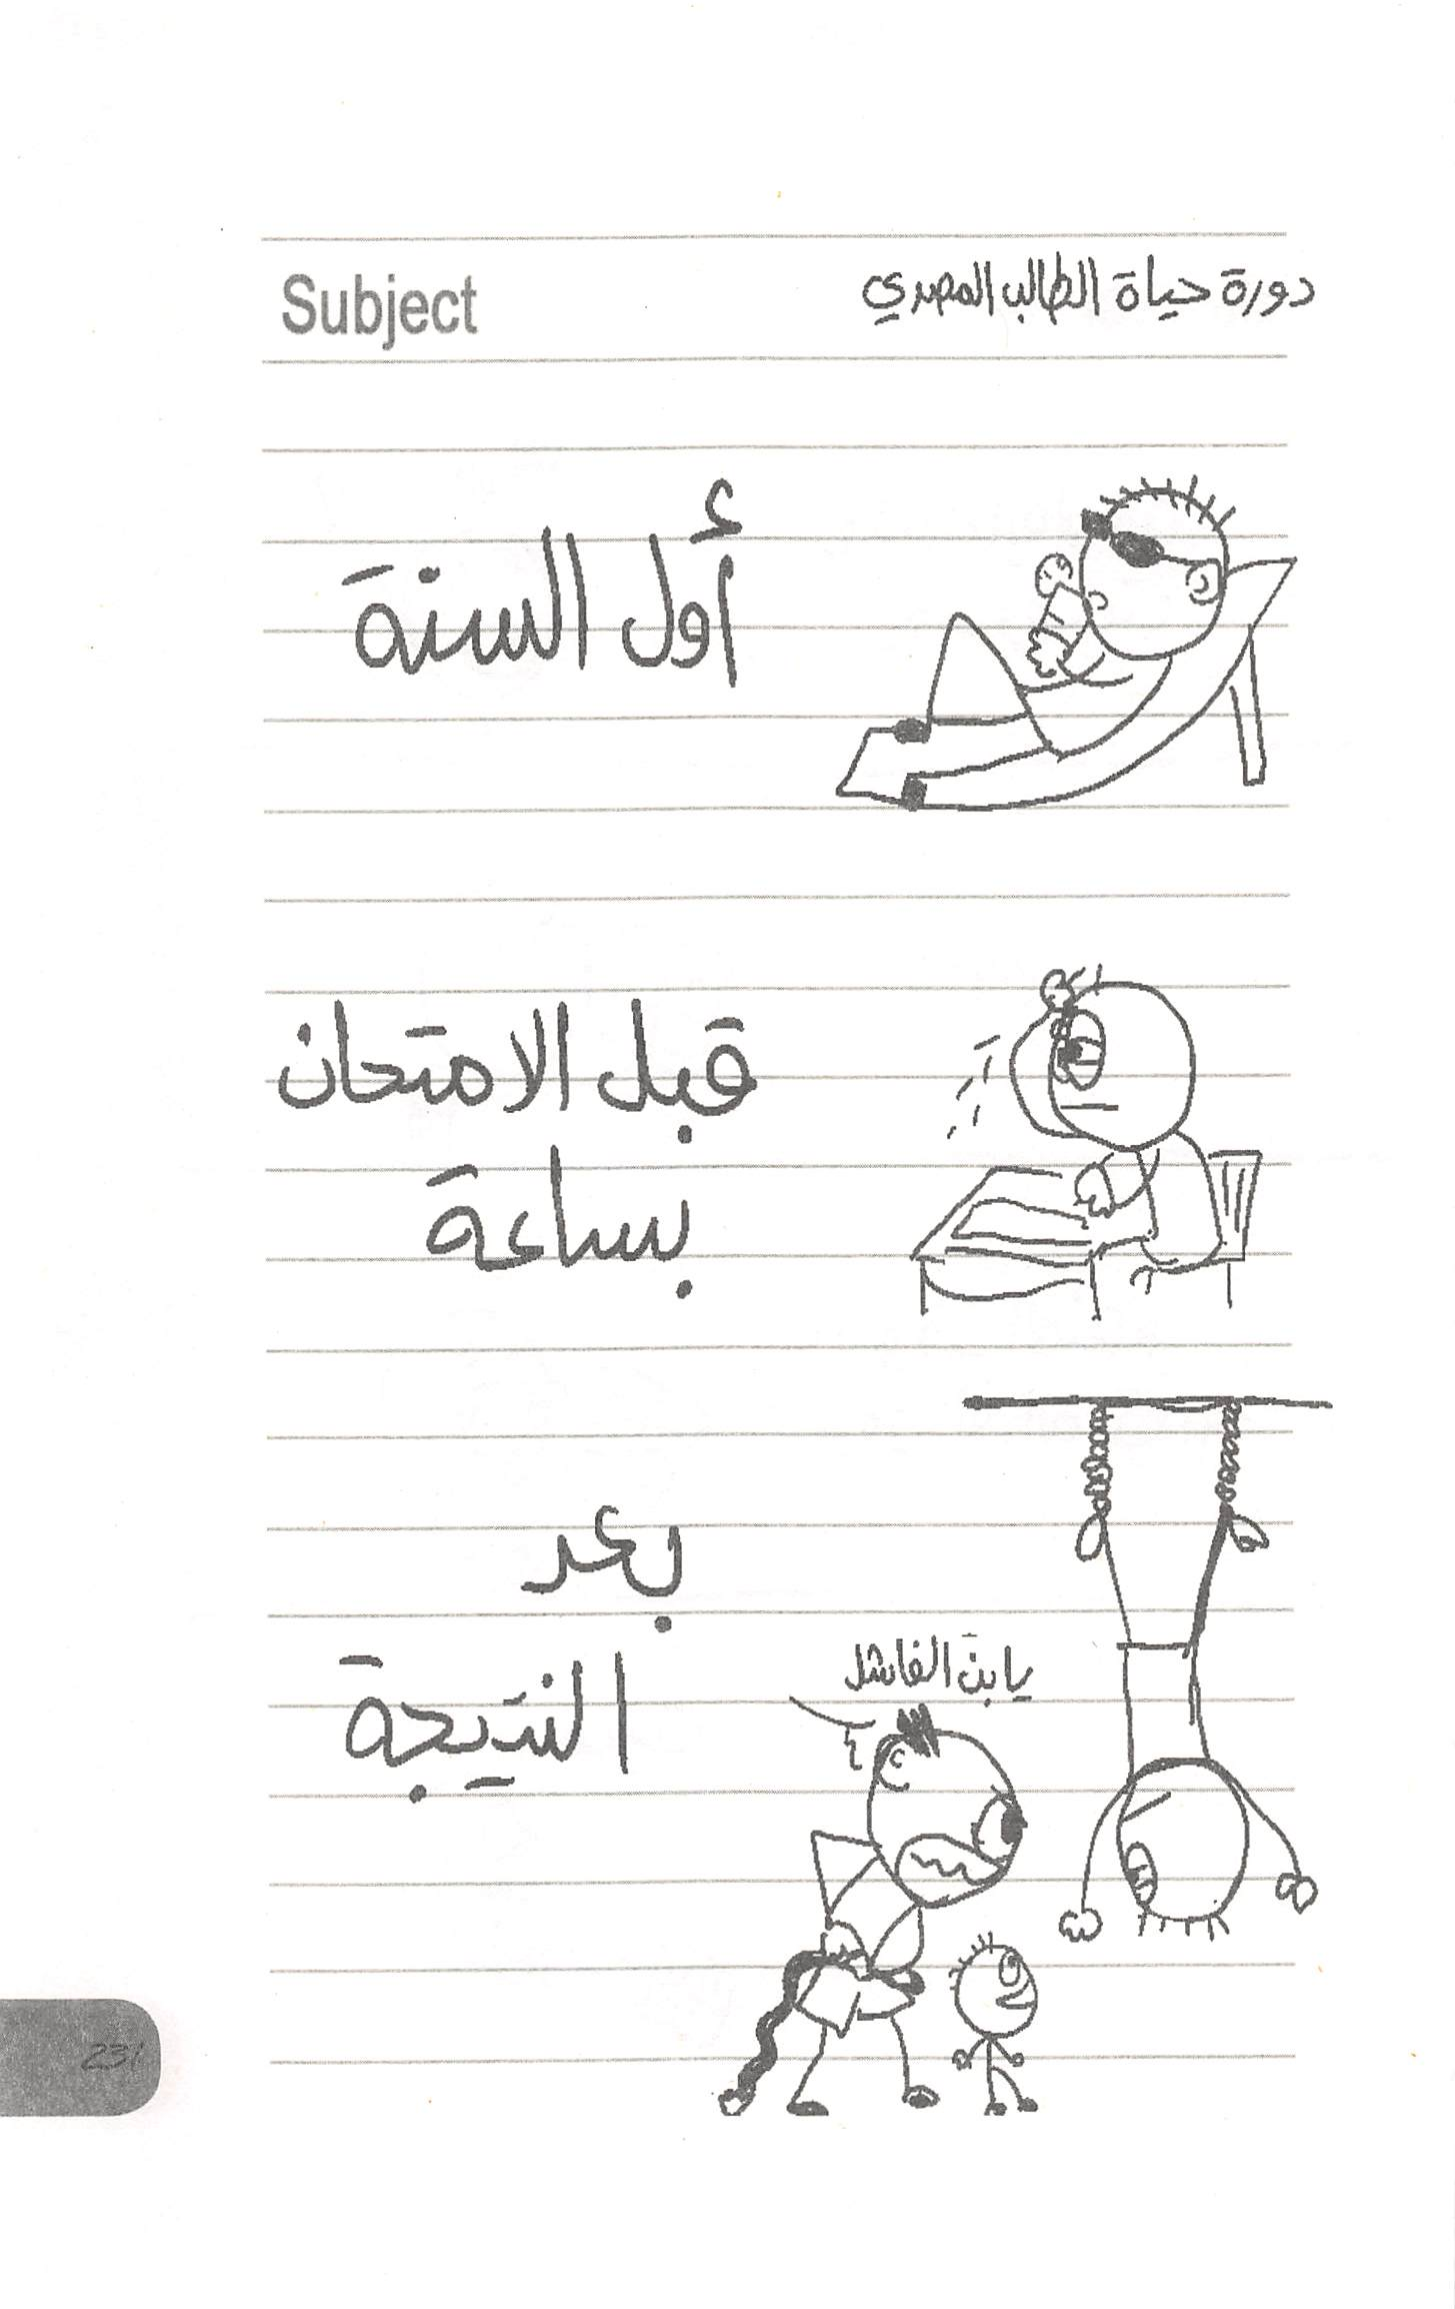 Subject
دورة حياة الطالب المصري
أول السنة
قبل الامتحان
بساعة
بعد
يا بن الفاشل
النتيجة
231